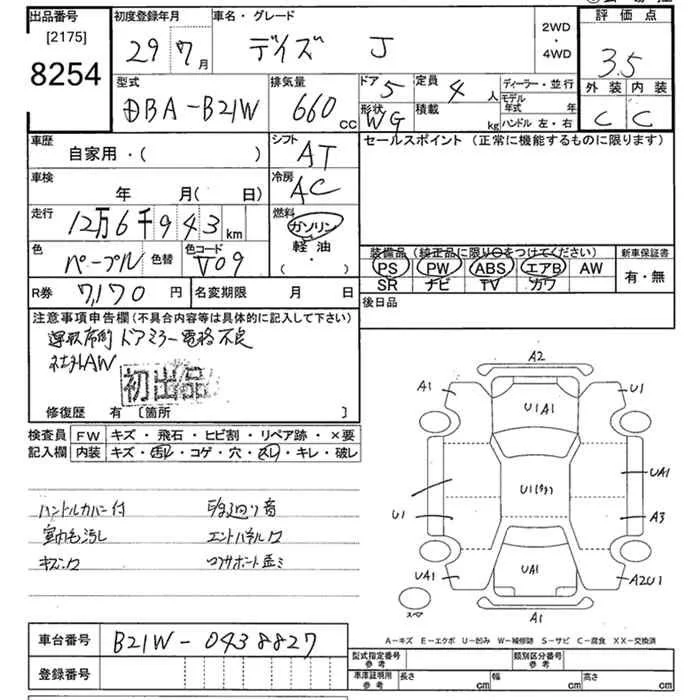 出品番号 初度登録年月 車名・グレード 評価点
[2175] 29年7月 デイズ J 2WD・4WD 3.5
8254
型式 排気量 ドア 5 定員 4人 ディーラー・並行 外装 内装
DBA-B21W 660cc 形状 WG 積載 kg モデル年式 年 ハンドル 左・右 C C
車歴 シフト セールスポイント(正常に機能するものに限ります)
自家用・( ) AT
車検 年 月( 日) 冷房 AC
走行 12万6千943km 燃料 ガソリン 軽油 ( ・ )
色 パープル 色替 色コード V09
装備品(純正品に限り○をつけてください) 新車保証書
PS PW ABS エアB AW 有・無
SR ナビ TV カワ
R券 7,170円 名変期限 月 日 後日品
注意事項申告欄(不具合内容等は具体的に記入して下さい)
ドアミラー電格不良
社外AW
初出品
修復歴 有〔箇所 〕
検査員 FW キズ・飛石・ヒビ割・リペア跡・×要
記入欄 内装 キズ・汚レ・コゲ・穴・スレ・キレ・破レ
ハンドルカバー付
室内汚レ エンドパネルワ
キズ
A2
A1 U1
U1A1
UA1
U1
A3
UA1 UA1 A2U1
スペア A1
A-キズ E-エクボ U-凹み W-補修跡 S-サビ C-腐食 XX-交換済
車台番号 B21W-0438827
登録番号
型式指定番号 参考 類別区分番号 参考
車庫証明用 参考 長さ cm 幅 cm 高さ cm